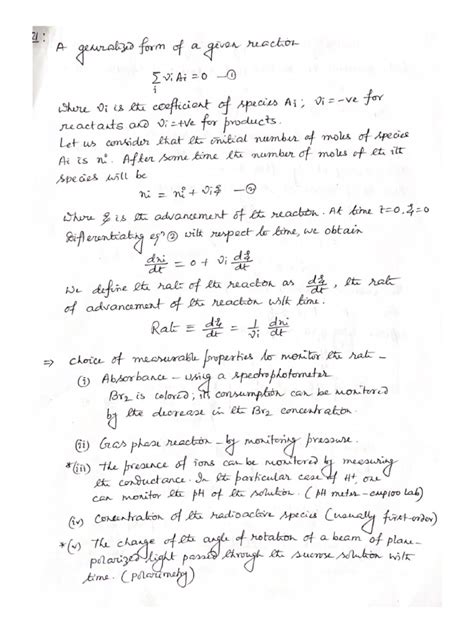 21:
A generalized form of a given reaction
∑i νi Ai = 0 — ①
where νi is the coefficient of species Ai; νi = -ve for
reactants and νi = +ve for products.
Let us consider that the initial number of moles of species
Ai is ni°. After some time the number of moles of the ith
species will be
ni = ni° + νi ξ — ②
where ξ is the advancement of the reaction. At time t=0, ξ=0
Differentiating eqn ② with respect to time, we obtain
dni/dt = 0 + νi dξ/dt
We define the rate of the reaction as dξ/dt, the rate
of advancement of the reaction with time.
Rate ≡ dξ/dt = 1/νi dni/dt
⇒ choice of measurable properties to monitor the rate –
(i) Absorbance – using a spectrophotometer
Br2 is colored; its consumption can be monitored
by the decrease in the Br2 concentration.
(ii) Gas phase reaction – by monitoring pressure.
*(iii) The presence of ions can be monitored by measuring
the conductance. In the particular case of H+, one
can monitor the pH of the solution. (pH meter – CMP100 Lab)
(iv) Concentration of the radioactive species (usually first-order)
*(v) The change of the angle of rotation of a beam of plane-
polarized light passed through the sucrose solution with
time. (polarimetry)